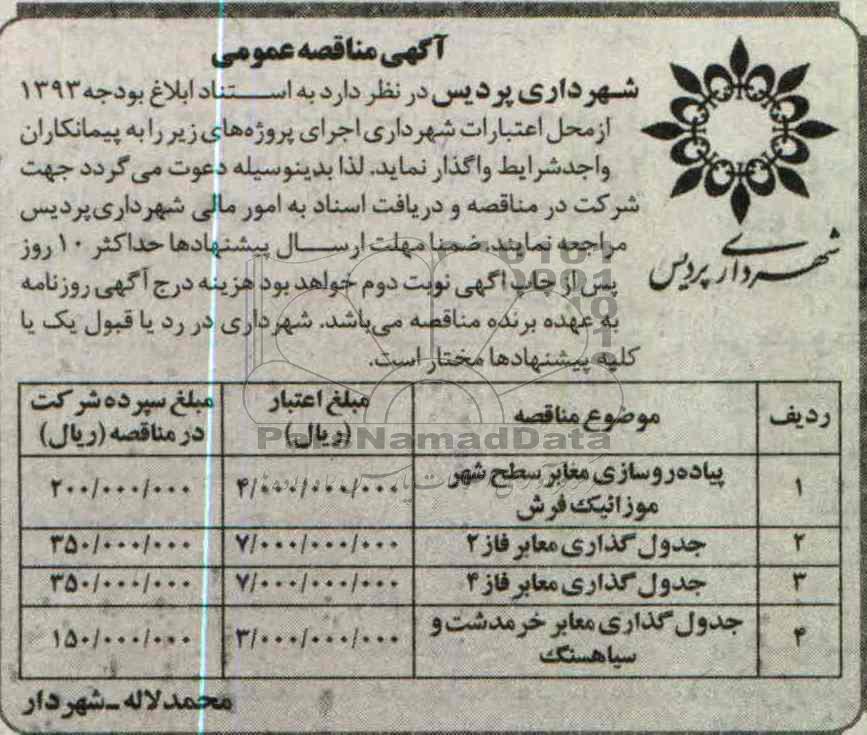 آگهی مناقصه عمومی
شهرداری پردیس در نظر دارد به استناد ابلاغ بودجه ۱۳۹۳
ازمحل اعتبارات شهرداری اجرای پروژه‌های زیر را به پیمانکاران
واجدشرایط واگذار نماید. لذا بدینوسیله دعوت می گردد جهت
شرکت در مناقصه و دریافت اسناد به امور مالی شهرداری پردیس
مراجعه نمایند. ضمنا مهلت ارسال پیشنهادها حداکثر ۱۰ روز
پس از چاپ آگهی نوبت دوم خواهد بود هزینه درج آگهی روزنامه
به عهده برنده مناقصه می‌باشد. شهرداری در رد یا قبول یک یا
کلیه پیشنهادها مختار است.
شهرداری پردیس
ردیف موضوع مناقصه مبلغ اعتبار (ریال) مبلغ سپرده شرکت در مناقصه (ریال)
۱ پیاده‌روسازی معابر سطح شهر موزائیک فرش ۴/۰۰۰/۰۰۰/۰۰۰ ۲۰۰/۰۰۰/۰۰۰
۲ جدول گذاری معابر فاز ۲ ۷/۰۰۰/۰۰۰/۰۰۰ ۳۵۰/۰۰۰/۰۰۰
۳ جدول گذاری معابر فاز ۴ ۷/۰۰۰/۰۰۰/۰۰۰ ۳۵۰/۰۰۰/۰۰۰
۴ جدول گذاری معابر خرمدشت و سیاهسنگ ۳/۰۰۰/۰۰۰/۰۰۰ ۱۵۰/۰۰۰/۰۰۰
محمدلاله ـ شهردار
ParsNamadData